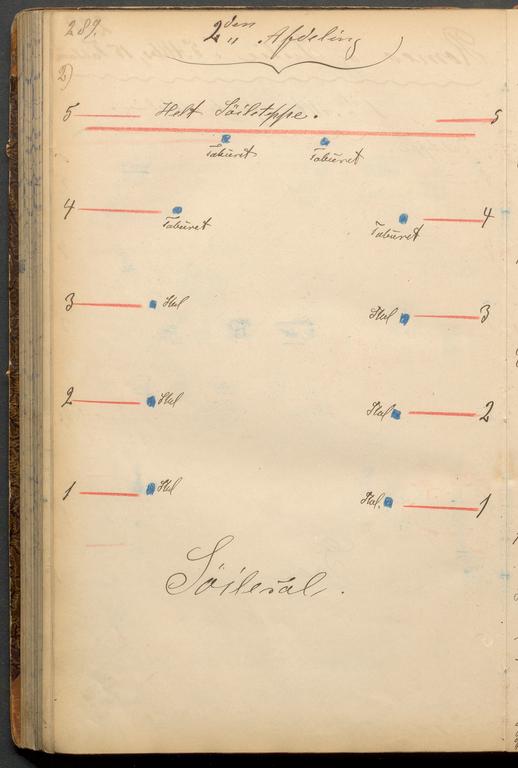 289.
2den Afdeling
2)
5 Helt Söiletppe. 5
Taburet Taburet
4 4
Taburet Taburet
3 Stol Stol 3
2 Stol Stol 2
1 Stol Stol. 1
Söilesal.